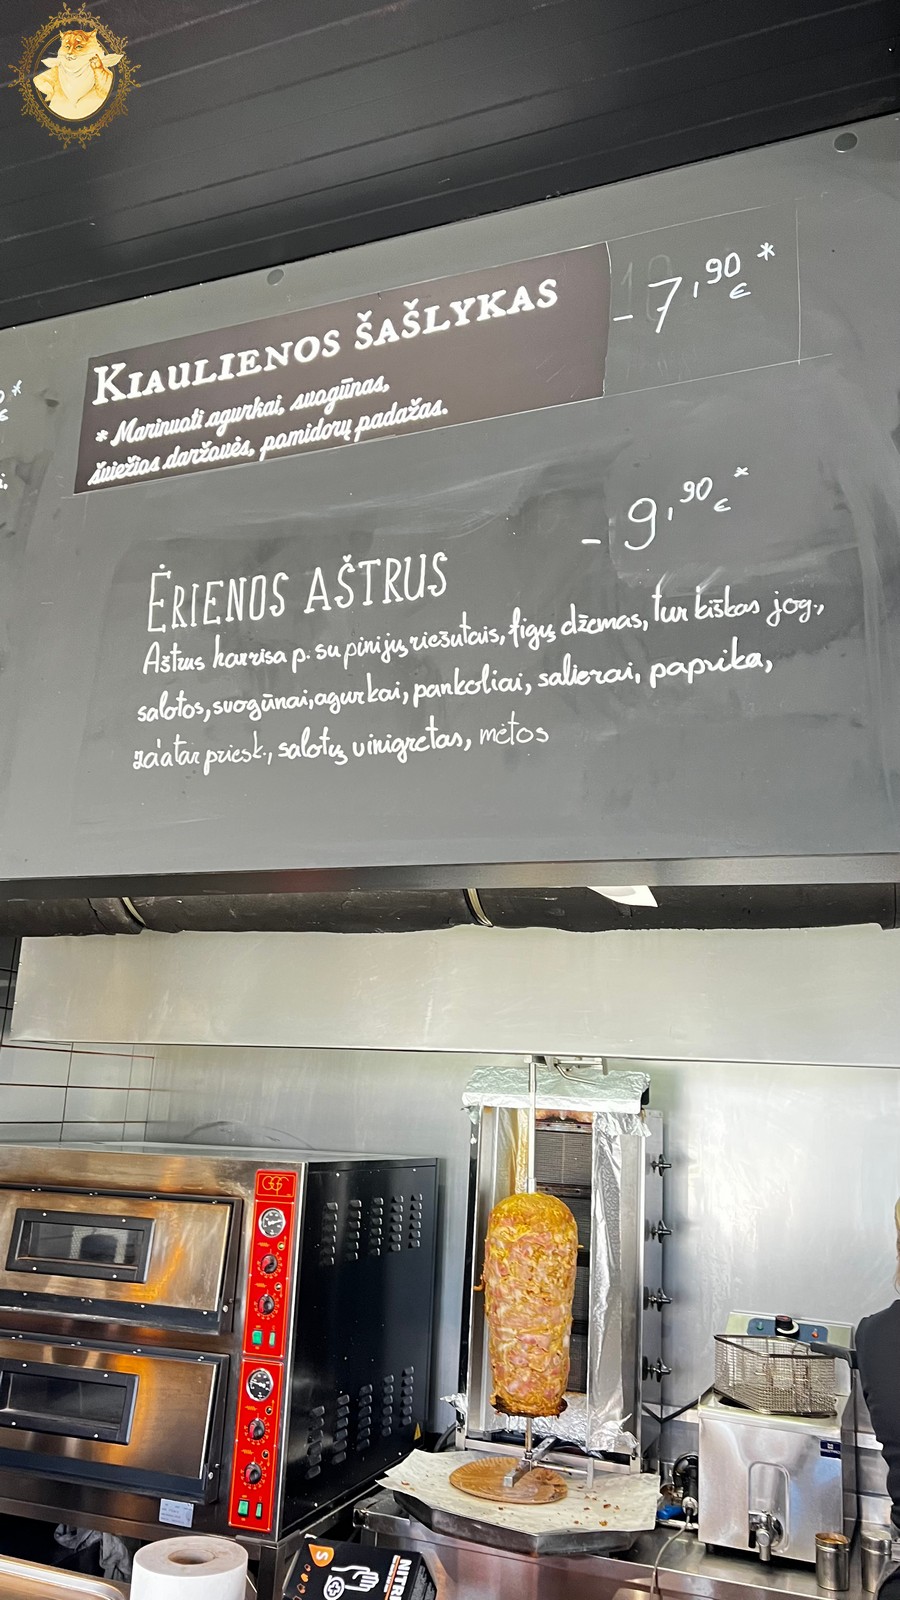 KIAULIENOS ŠAŠLYKAS
- 7,90 € *
* Marinuoti agurkai, svogūnas,
šviežios daržovės, pomidorų padažas.
- 9,90 € *
ĖRIENOS AŠTRUS
Aštrus harrisa p. su pinijų riešutais, figų džemas, turkiškas jog.,
salotos, svogūnai, agurkai, pankoliai, salierai, paprika,
za'atar priesk., salotų vinigretas, mėtos
GGF
S
NITRI